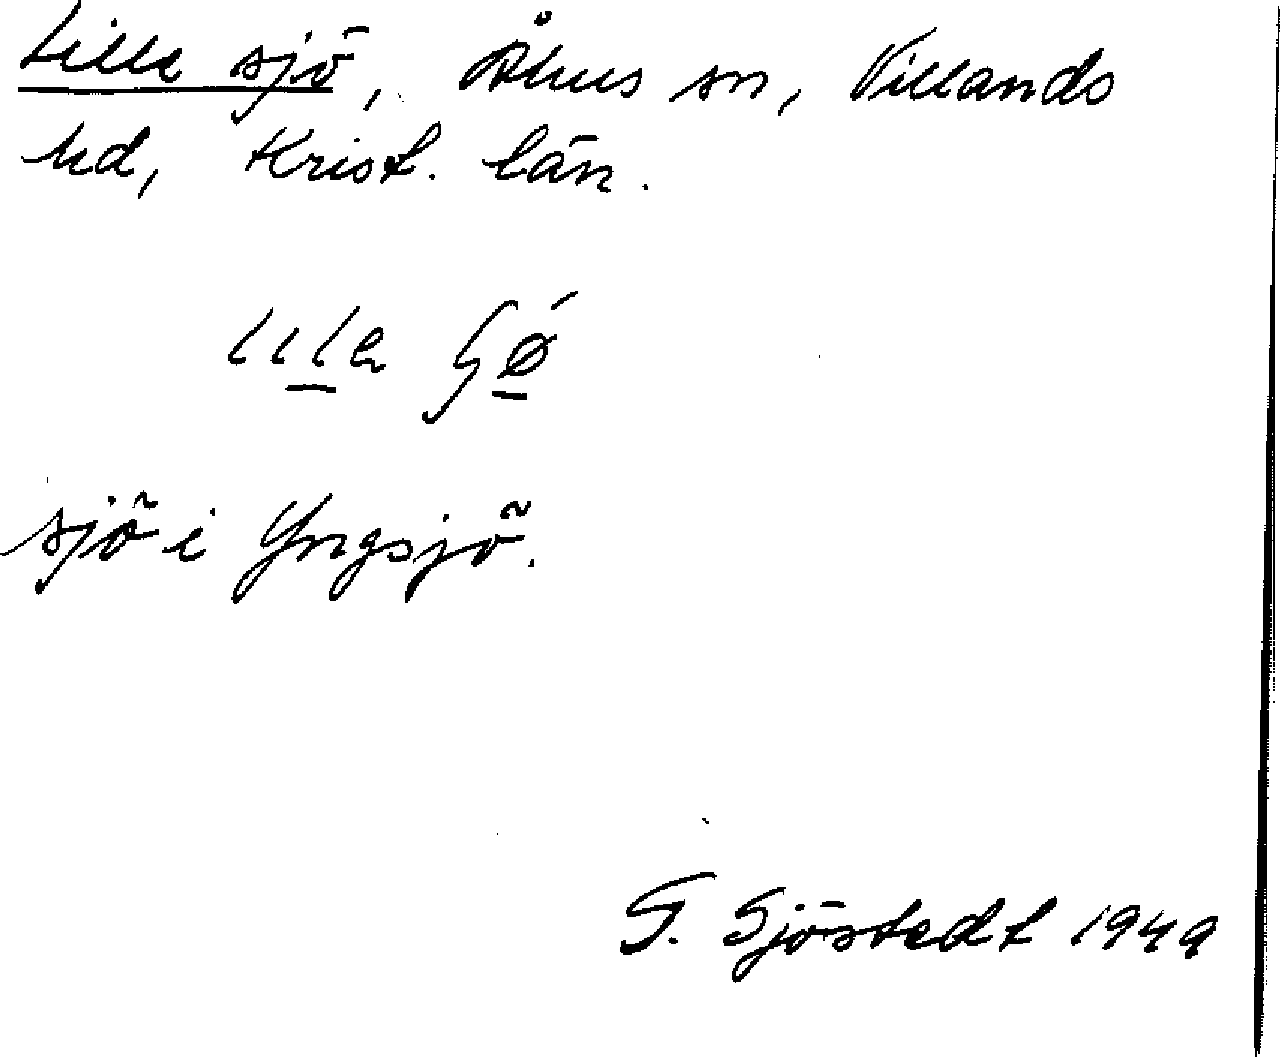 Lille sjö, Åhus sn, Villands
hd, Krist. län.
sjö i Yngsjö.
G. Sjöstedt 1949